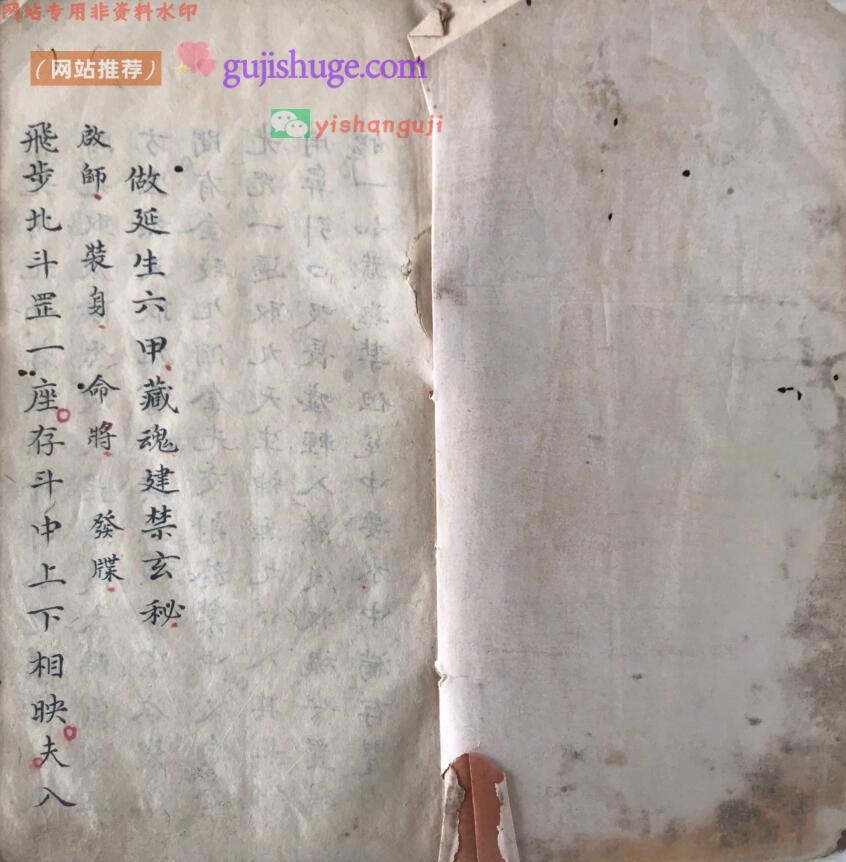 网站专用非资料水印
（网站推荐）
gujishuge.com
yishanguji
做延生六甲藏魂建禁玄秘
啟師 裝身 命將 發牒
飛步北斗罡一座存斗中上下相映夫八